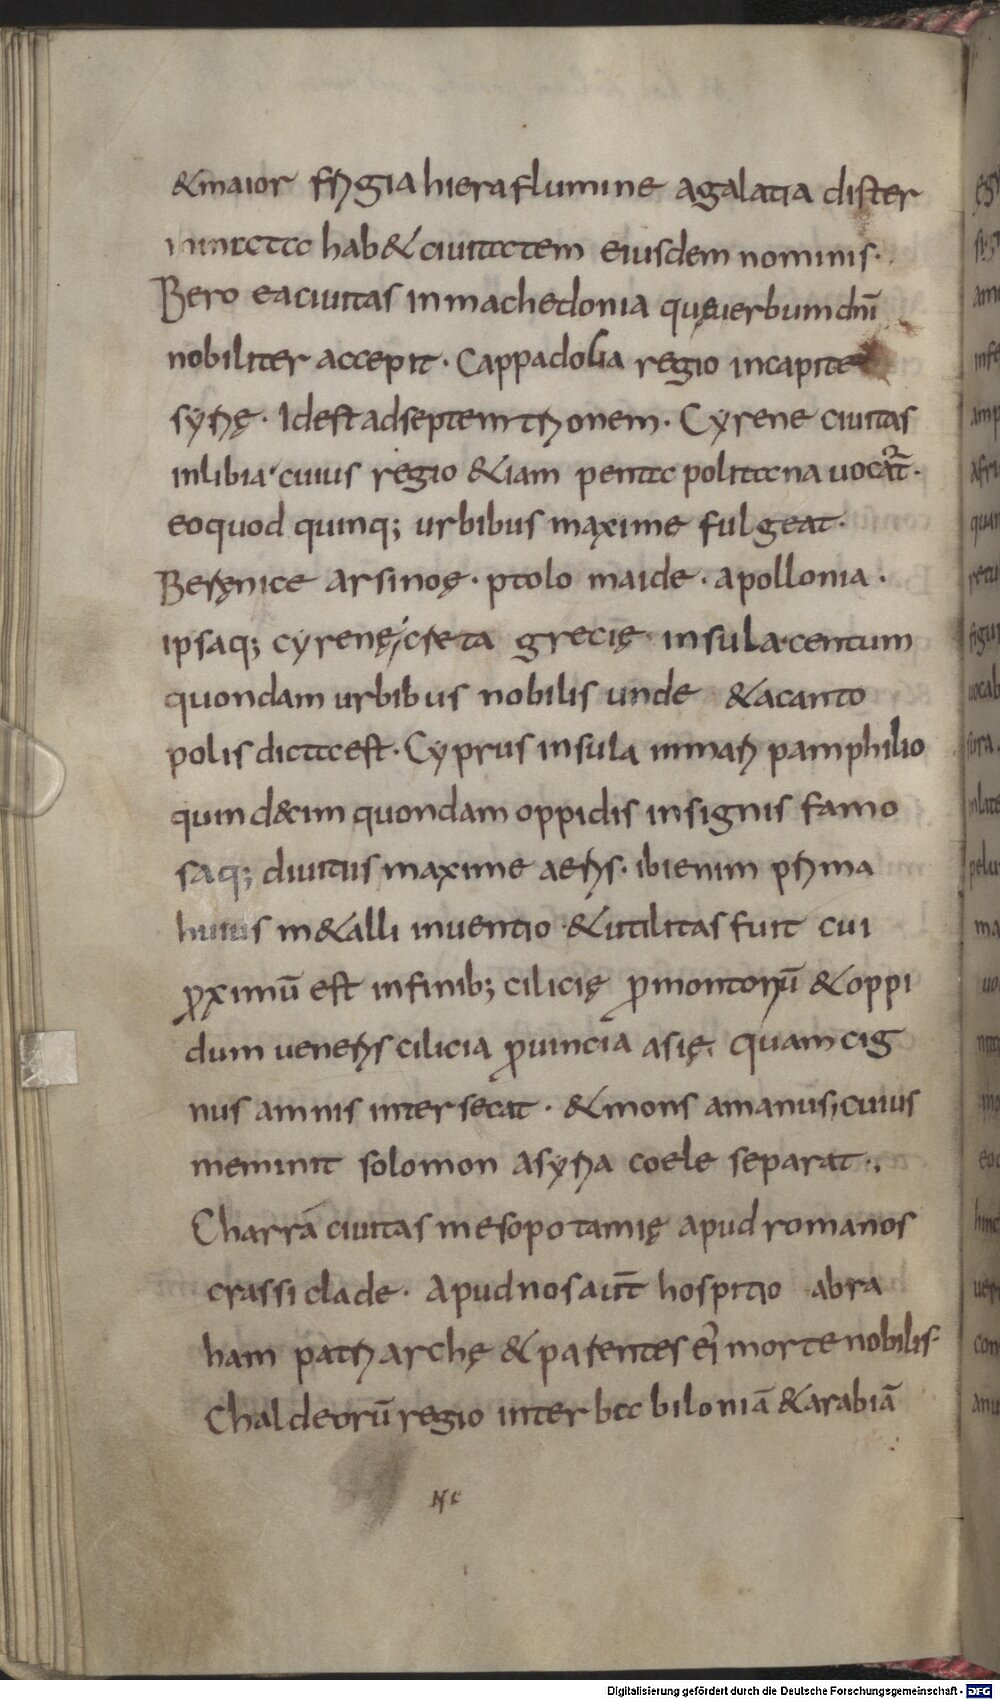 &maior frigia hiera flumine agalatia dister
minata hab& ciuitatem eiusdem nominis·
Bero ea ciuitas in machedonia quę uerbum dn̄i
nobiliter accepit· Cappadolia regio incapite
syrię· Id est ad septemtrionem· Cyrene ciuitas
inlibia cuius regio &iam penta politana uocat̄·
eoquod quinq; urbibus maxime fulgeat·
Beręnice arsinoę· ptolo maide· apollonia·
ipsaq; cyrenę, creta grecię insula centum
quondam urbibus nobilis unde &acanto
polis dicta est· Cyprus insula inmari pamphilio
quindecim quondam oppidis insignis famo
saq; diuitiis maxime aeris· ibi enim prima
huius m&alli inuentio &utilitas fuit cui
ꝓximū est infinib; cilicię ꝓmontoriū &oppi
dum ueneris cilicia ꝓuincia asię. quam cig
nus amnis intersecat· &mons amanus, cuius
meminit solomon asyria coele separat·,
Charra ciuitas mesopotamię apud romanos
crassi clade· Apud nos aut̄ hospitio abra
ham patriarchę &parentes ei morte nobilis·
Chaldeorū regio inter babiloniā &arabiā
Digitalisierung gefördert durch die Deutsche Forschungsgemeinschaft - DFG